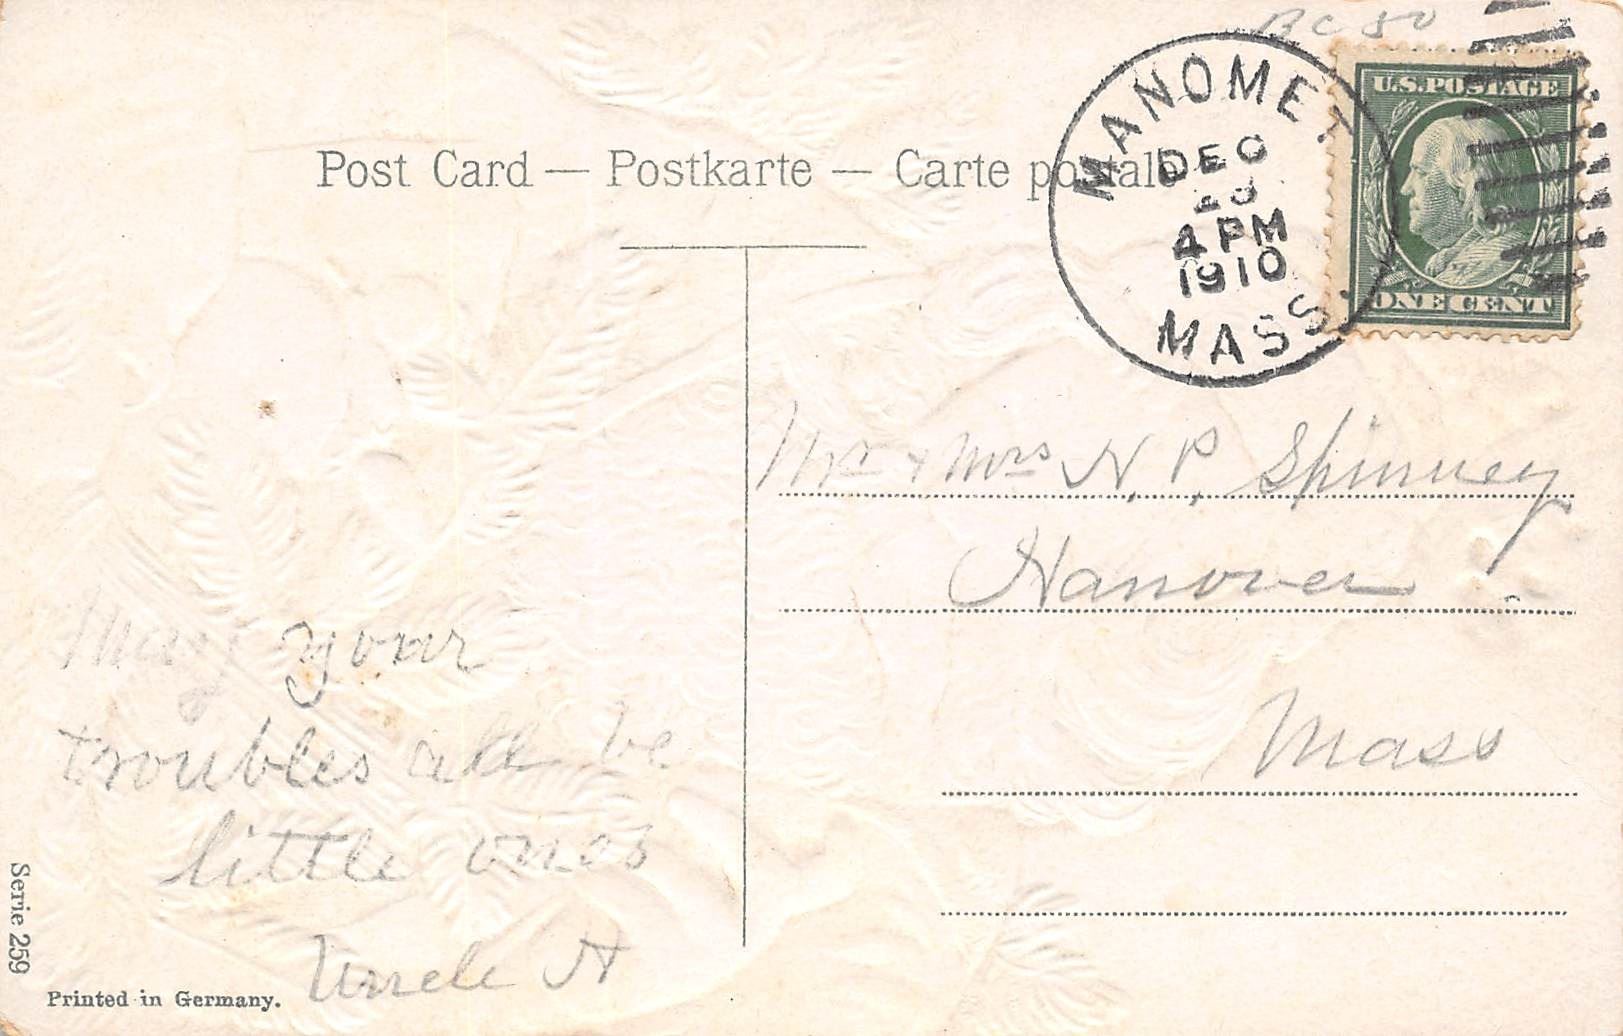 BC 50
U.S. POSTAGE
ONE CENT
MANOMET
DEC
4 PM
1910
MASS.
Post Card — Postkarte — Carte postale
Mr + Mrs N. P. Spinney
Hanover
Mass
May your
troubles all be
little ones
Uncle H
Serie 259
Printed in Germany.